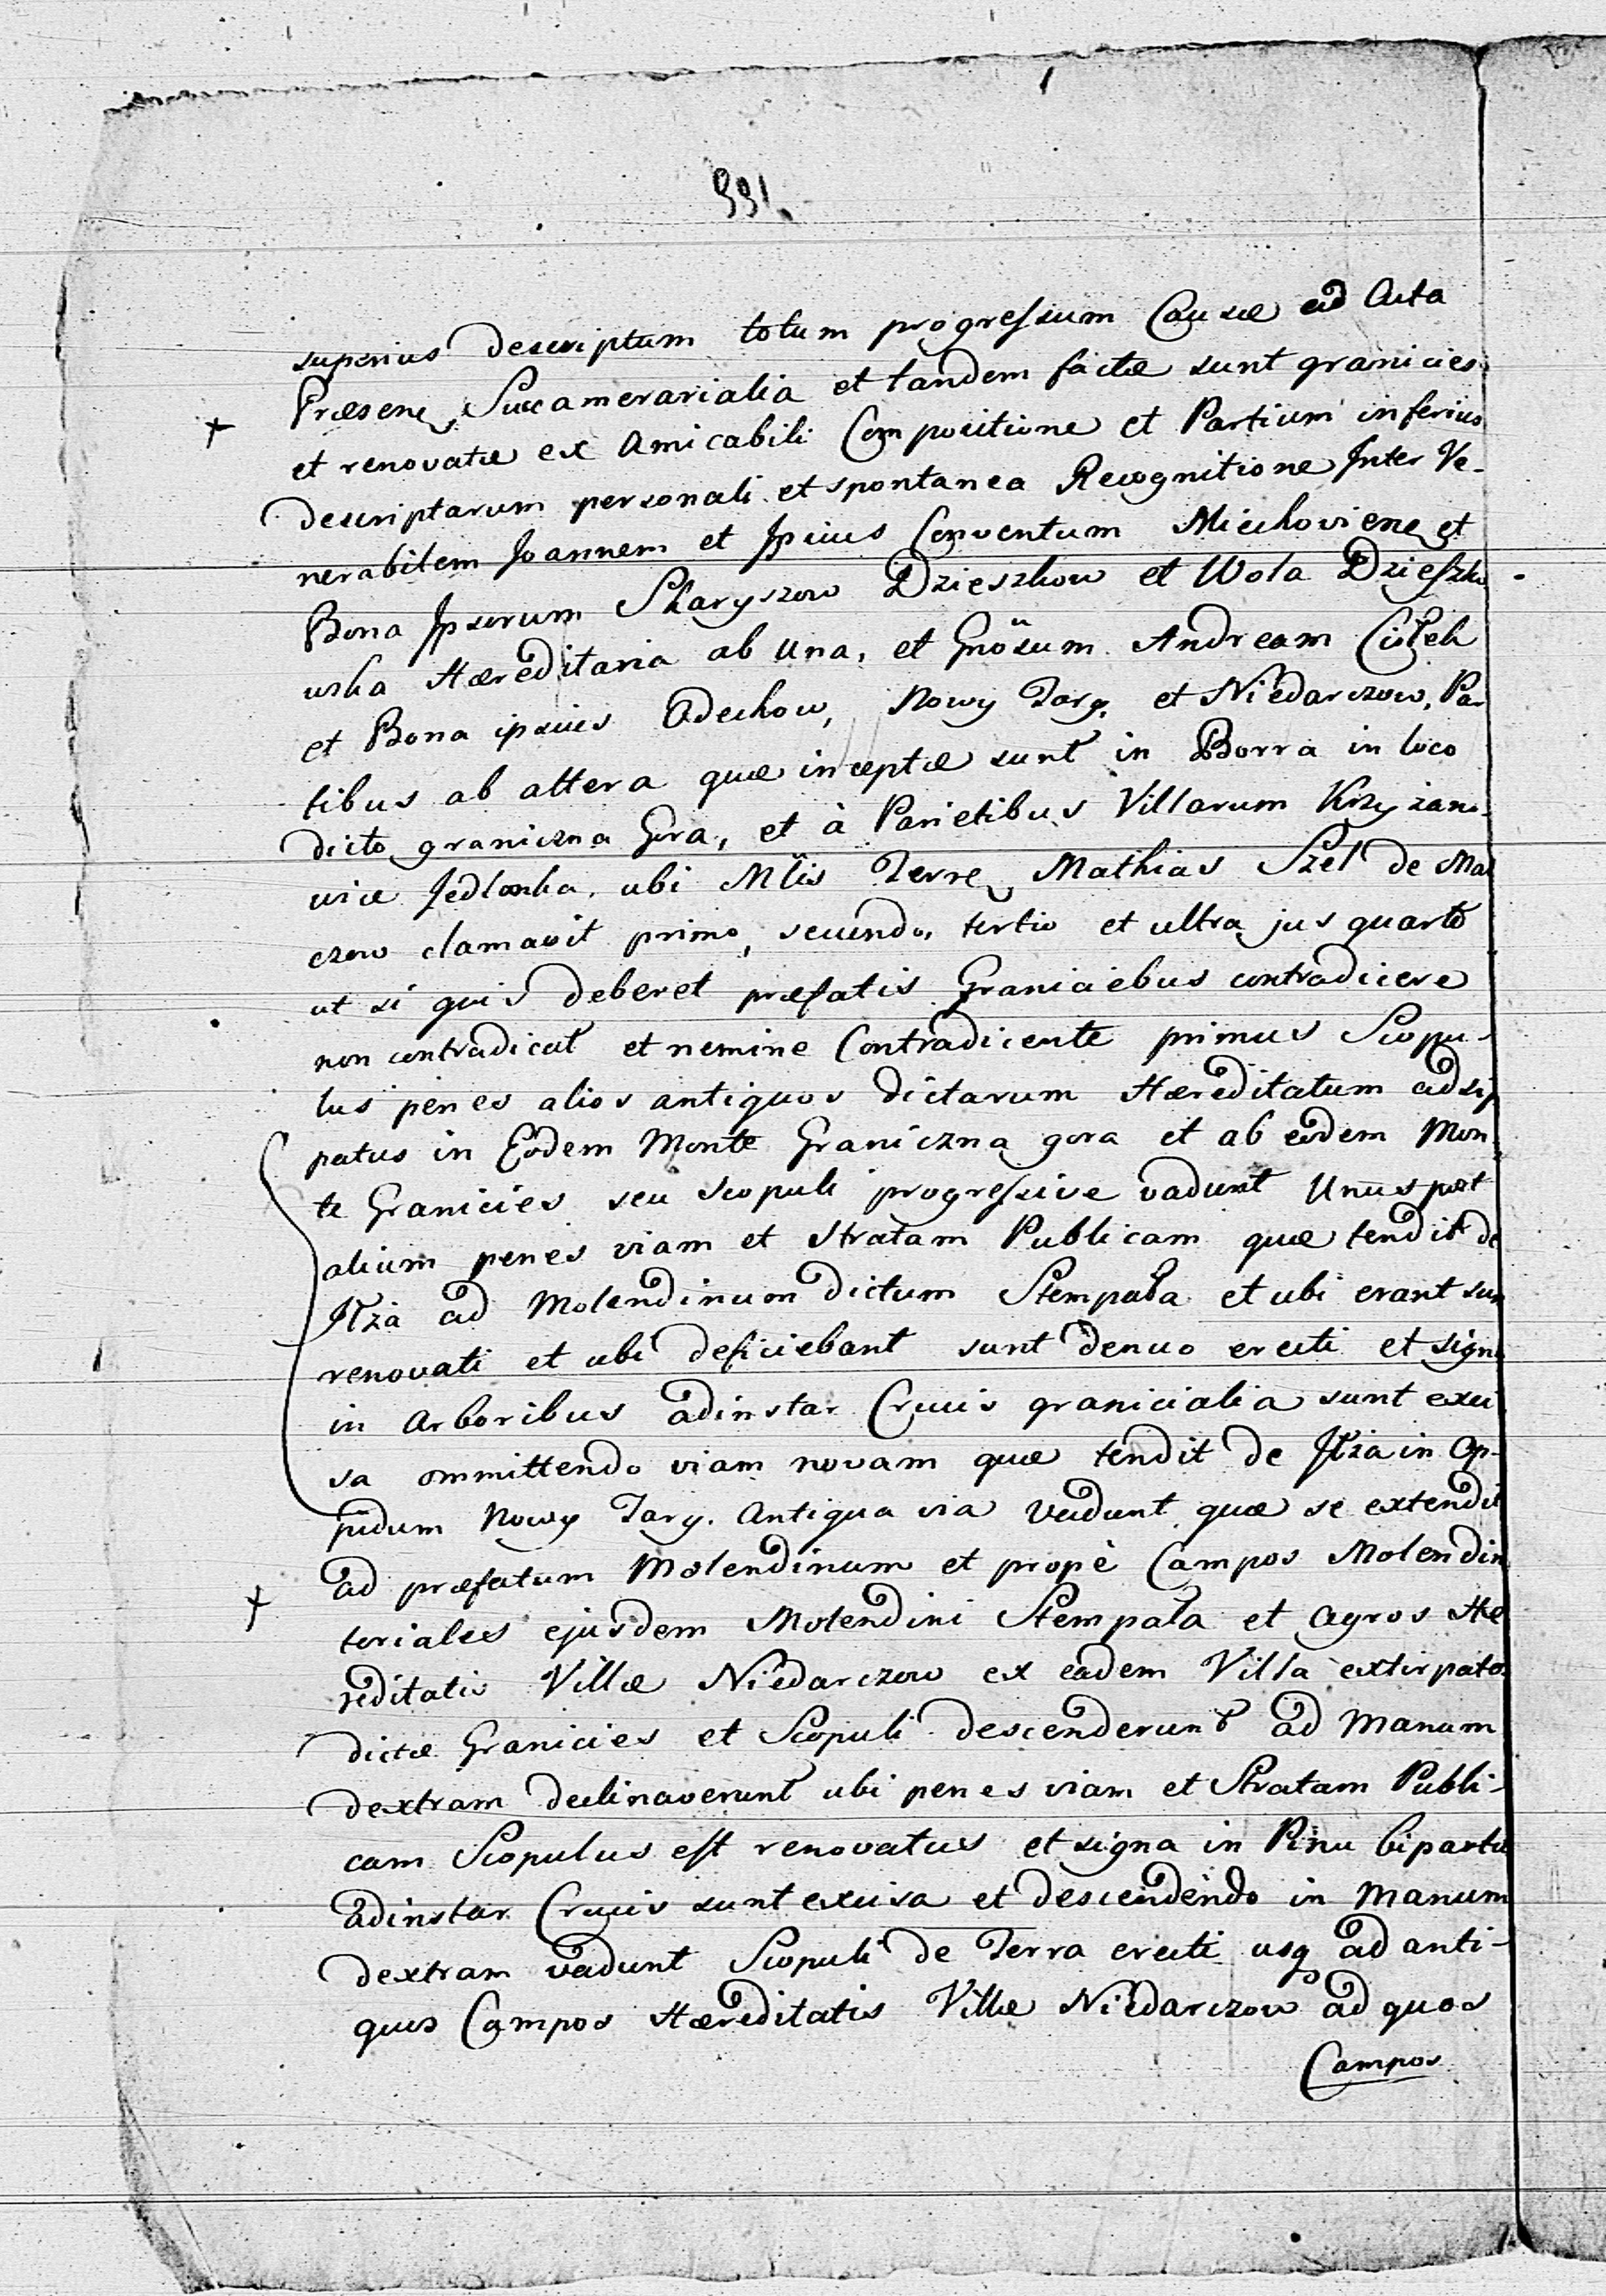 991.
superius descriptum totum progressum Causæ ad Acta
Præsen. Succamerarialia et tandem factæ sunt granicies
et renovatæ ex Amicabili Compositione et Partium inferius
descriptarum personali et spontanea Recognitione Inter Ve-
nerabilem Joannem et Ipsius Conventum Miechovien. et
Bona Ipsorum Skaryszow Dzieszkow et Wola Dzieszko-
wska Hæreditaria ab Una, et Gnösum Andream Ciołek
et Bona ipsius Odechow, Nowy Targ. et Niedarczow, Par
tibus ab altera quæ inceptæ sunt in Borra in loco
dicto graniczna Gora, et à Parietibus Villarum Krzyzano-
wice Jedlonka. ubi Mlis Terre. Mathias Szel de Mal
czow clamavit primo, secundo, tertio et ultra jus quarto
ut si quis deberet præfatis Graniciebus contradicere
non contradicat et nemine Contradicente primus Scopu-
lus penes alios antiquos dictarum Hæreditatum adsip
patus in Eodem Monte Graniczna gora et ab eodem Mon-
te Granicies seu Scopuli progressive vadunt Unus post
alium penes viam et Stratam Publicam quæ tendit de
Iłza ad Molendinum dictum Stempała et ubi erant sun
renovati et ubi deficiebant sunt denuo erecti et signa
in Arboribus adinstar Crucis granicialia sunt exci
sa ommittendo viam novam quæ tendit de Iłza in Op-
pidum Nowy Targ. Antiqua via Vadunt quæ se extendit
ad præfatum Molendinum et propè Campos Molendina
toriales ejusdem Molendini Stempała et Agros Hæ
reditatis Villæ Niedarczow ex eadem Villa extirpatos
dictæ Granicies et Scopuli descenderunt ad Manum
dextram declinaverunt ubi penes viam et Stratam Publi-
cam Scopulus est renovatus et signa in Pinu bipartita
adinstar Crucis sunt excisa et descendendo in Manum
dextram vadunt Scopuli de Terra erecti usq ad anti-
quos Campos Hæreditatis Villæ Niedarczow ad quos
Campos